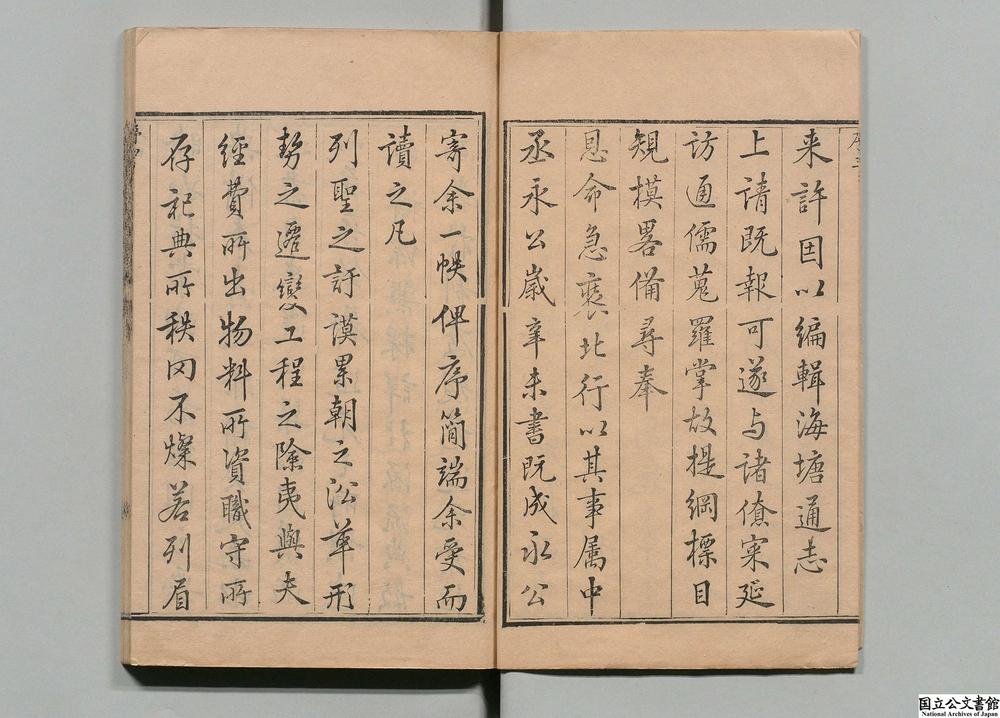 来許因以編輯海塘通志
上請既報可遂与諸僚寀延
訪通儒蒐羅掌故提綱標目
規模畧備尋奉
恩命急裝北行以其事属中
丞永公嵗辛未書既成永公
寄余一帙俾序簡端余受而
讀之凡
列聖之訏謨累朝之沿革形
勢之遷變工程之除夷與夫
經費所出物料所資職守所
存祀典所秩罔不燦若列眉
国立公文書館
National Archives of Japan